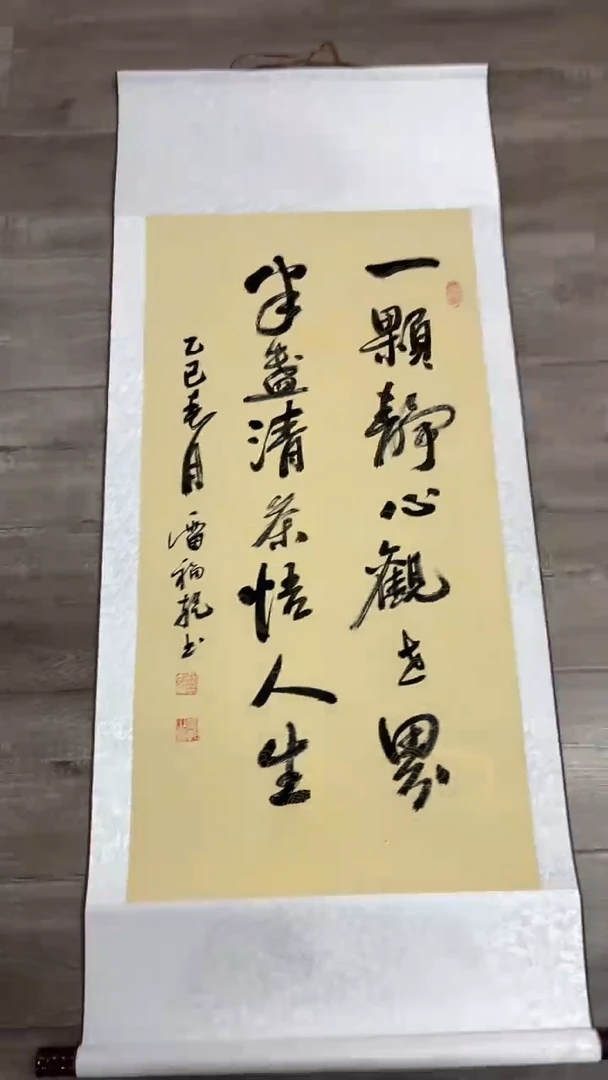 一顆靜心觀世界
半盞清茶悟人生
乙巳春月潘福乾书